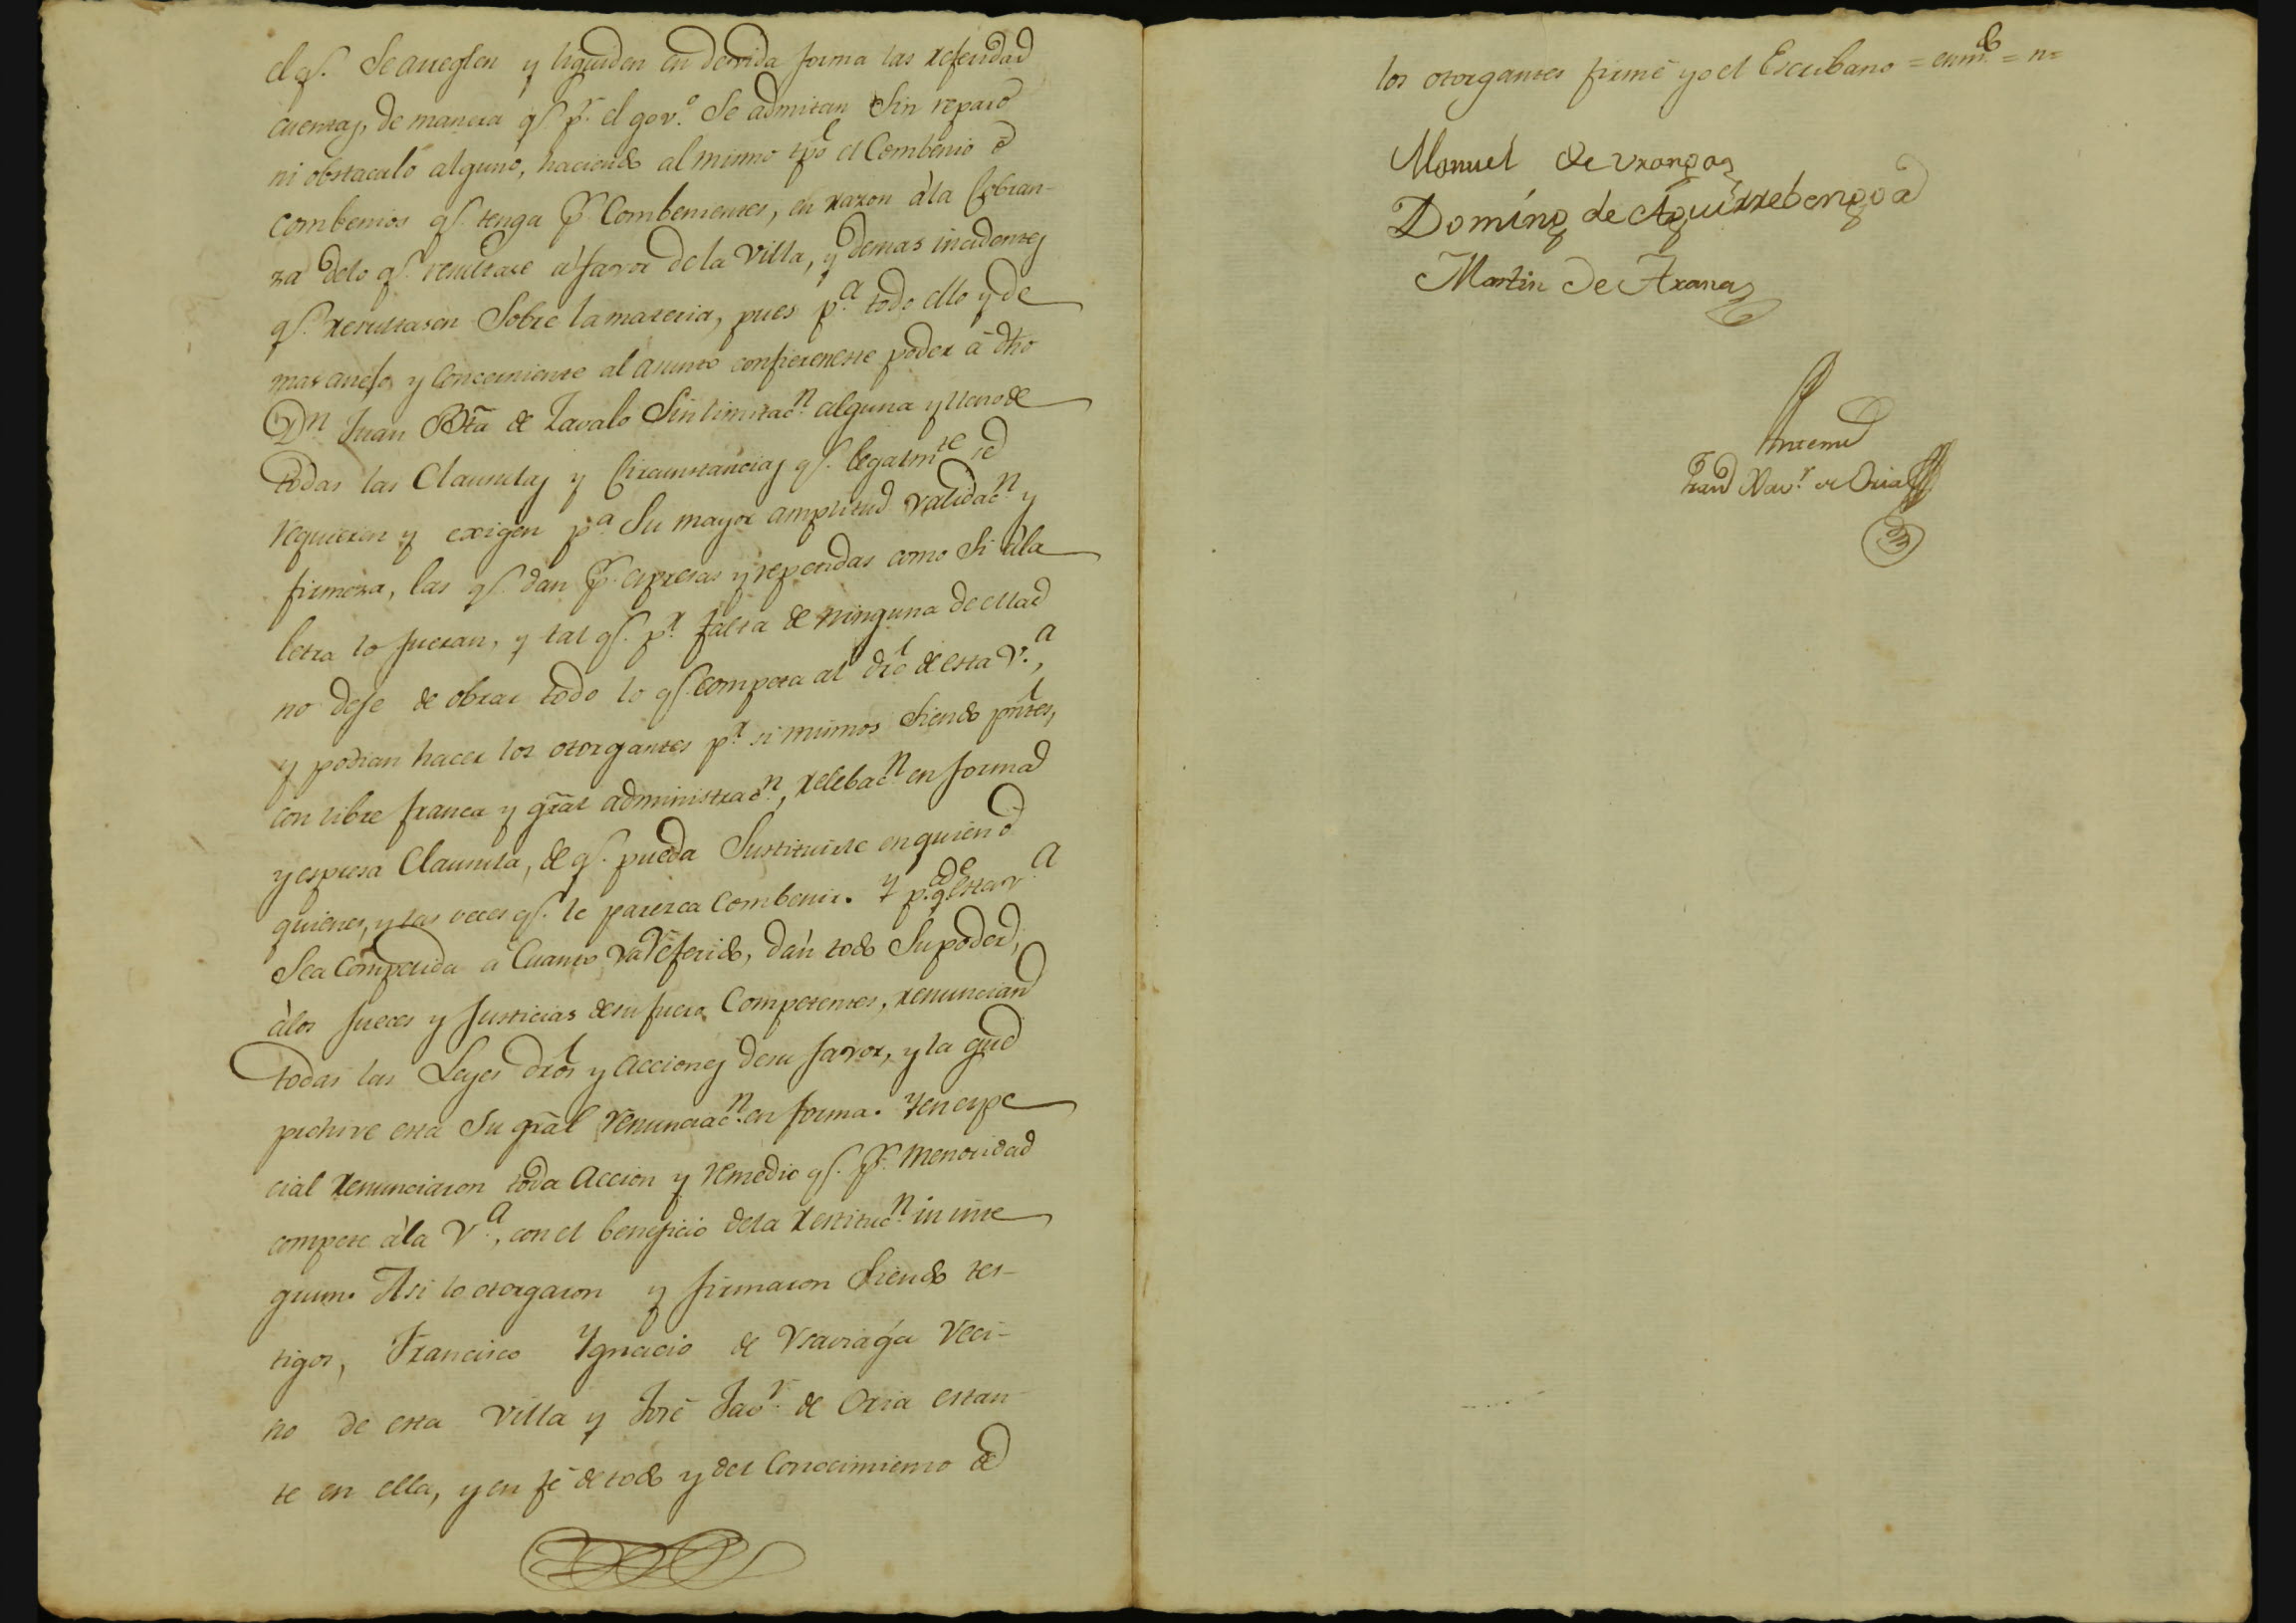 el qe. Se arreglen y liquiden en devida forma las referidas
cuentas, de manera qe. pr. el govo. Se admitan Sin reparo
ni obstaculo alguno, haciendo al mismo tpo el Combenio o
combenios qe. tenga pr. Combenientes, en razon à la Cobran-
za delo qe. resultare à favor de la Villa, y demas incidentes
qe. resultasen Sobre la materia, pues pa. todo ello y de
mas anejo y Concerniente al asunto confieren este poder à dho
Dn Juan Bta de Zavalo Sin limitacn. alguna y lleno de
todas las Clausulas y Circunstancias qe. legalmte se
requieren y exigen pa. Su mayor amplitud validacn y
firmeza, las qe. dan pr. expresas y repetidas como Si àla
letra lo fueran, y tal qe. pr. falta de ninguna de ellas
no deje de obrar todo lo qe competa al dro de esta Va.,
y podian hacer los otorgantes pr. si mismos Siendo pntes,
con libre franca y gral administracn., relebacn. en forma
y espresa Clausula, de qe. pueda Sustituirle en quien o
quienes, y las veces qe. le parezca Combenir. Y pa. qe. esta Va.
Sea Compelida à Cuanto va referido, dàn todo Su poder,
àlos Jueces y Justicias desu fuero Competentes, renunciand
todas las Leyes dros y acciones desu favor, y la que
prohive esta Su gral renunciacn. en forma. Y en espe
cial renunciaron toda accion y remedio qe. pr. menoridad
compete àla Va., con el beneficio dela restitucn. in inte
grum. Asi lo otorgaron y firmaron Siendo tes-
tigos, Francisco Ygnacio de Vsaviaga Veci-
no de esta Villa y José Javr. de Oria estan-
te en ella, y en fé de todo y del Conocimiento de
los otorgantes firmé yo el Escribano = enmdo = n=
Manuel de Vranga
Domingo de Aguirrebengoa
Martin de Arana
Antemi
Franco Xavr. de Oria